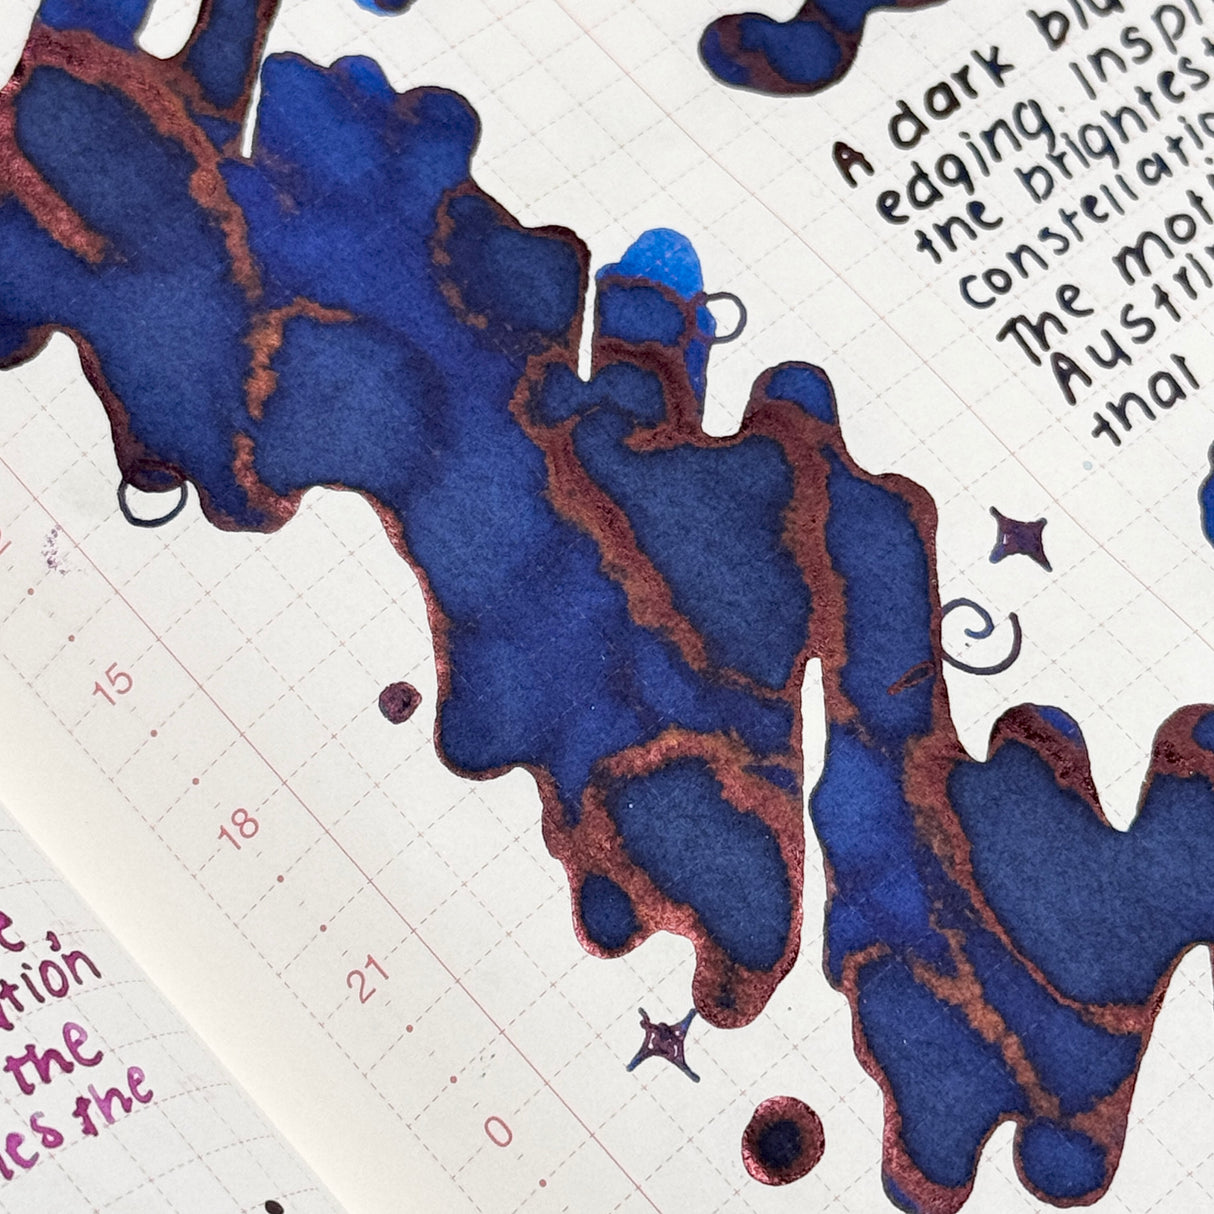 A dark
edging. Inspi
the brightest
constellatio
The mot
Austrin
that
15
18
21
0
e,
tion,
the
les the